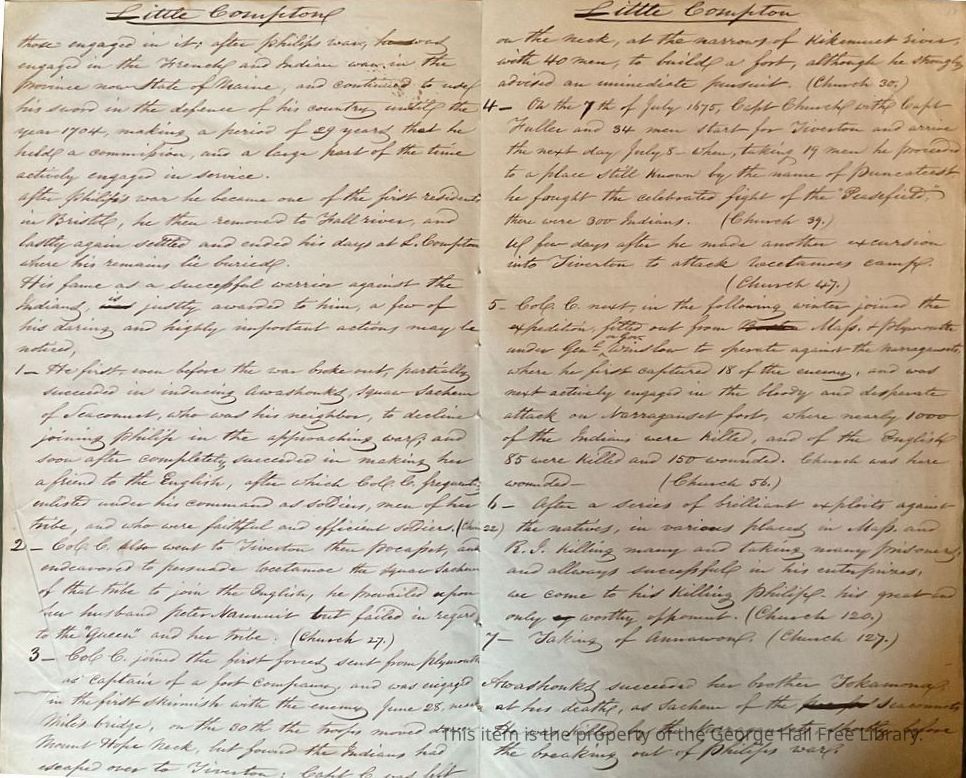 Little Compton
those engaged in it; after Philips war, he was
engaged in the French and Indian war, in the
Province now State of Maine, and continued to use
his sword in the defence of his country until the
year 1704, making a period of 29 years that he
held a commission, and a large part of the time
actively engaged in service.
after Philips war he became one of the first residents
in Bristol, he then removed to Fall river, and
lastly again settled and ended his days at L. Compton
where his remains lie buried.
His fame as a successful warrior against the
Indians, is justly awarded to him, a few of
his daring and highly important actions may be
noticed,
1 — He first even before the war broke out, partially
succeeded in inducing Awashonks, Squaw Sachem
of Seaconnet, who was his neighbor, to decline
joining Philip in the approaching war, and
soon after completely succeeded in making her
a friend to the English, after which Col. C. frequently
enlisted under his command as soldiers, men of her
tribe, and who were faithful and efficient soldiers. (Church 22)
2 — Col. C. also went to Tiverton then Pocasset, and
endeavored to persuade Weetamoe the Squaw Sachem
of that tribe to join the English, he prevailed upon
her husband Peter Nannuit but failed in regard
to the "Queen" and her tribe. (Church 27.)
3 — Col. C. joined the first forces sent from Plymouth
as captain of a company, and was engaged
in the first skirmish with the enemy June 28, near
Miles bridge, on the 30th the troops moved
Mount Hope Neck, but found the Indians had
escaped over to Tiverton; Capt C. was left
Little Compton
on the neck, at the narrows of Kikemuet river,
with 40 men, to build a fort, although he strongly
advised an immediate pursuit. (Church 30.)
4 — On the 7th of July 1675, Capt Church with Capt
Fuller and 34 men start for Tiverton and arrive
the next day July 8 — when, taking 19 men he proceeded
to a place still known by the name of Puncateest
he fought the celebrated fight of the "Peasefield,"
there were 300 Indians. (Church 39.)
A few days after he made another excursion
into Tiverton to attack Weetamoes camp.
(Church 47.)
5 — Col. C. next, in the following winter joined the
expedition, fitted out from Mass. & Plymouth
under Genl. Winslow to operate against the Narragansets,
where he first captured 18 of the enemy, and was
next actively engaged in the bloody and desperate
attack on Narraganset fort, where nearly 1000
of the Indians were killed, and of the English
85 were killed and 150 wounded. Church was here
wounded — (Church 56.)
6 — After a series of brilliant exploits against
the natives, in various places in Mass. and
R. I. killing many and taking many prisoners,
and allways successful in his enterprises,
we come to his killing Philip. his great and
only worthy opponent. (Church 120.)
7 — Taking of Annawon. (Church 127.)
Awashonks succeeded her brother Tokamona,
at his death, as Sachem of the Seaconnets
He was killed by the
the breaking out of Philips war.
This item is the property of the George Hail Free Library.